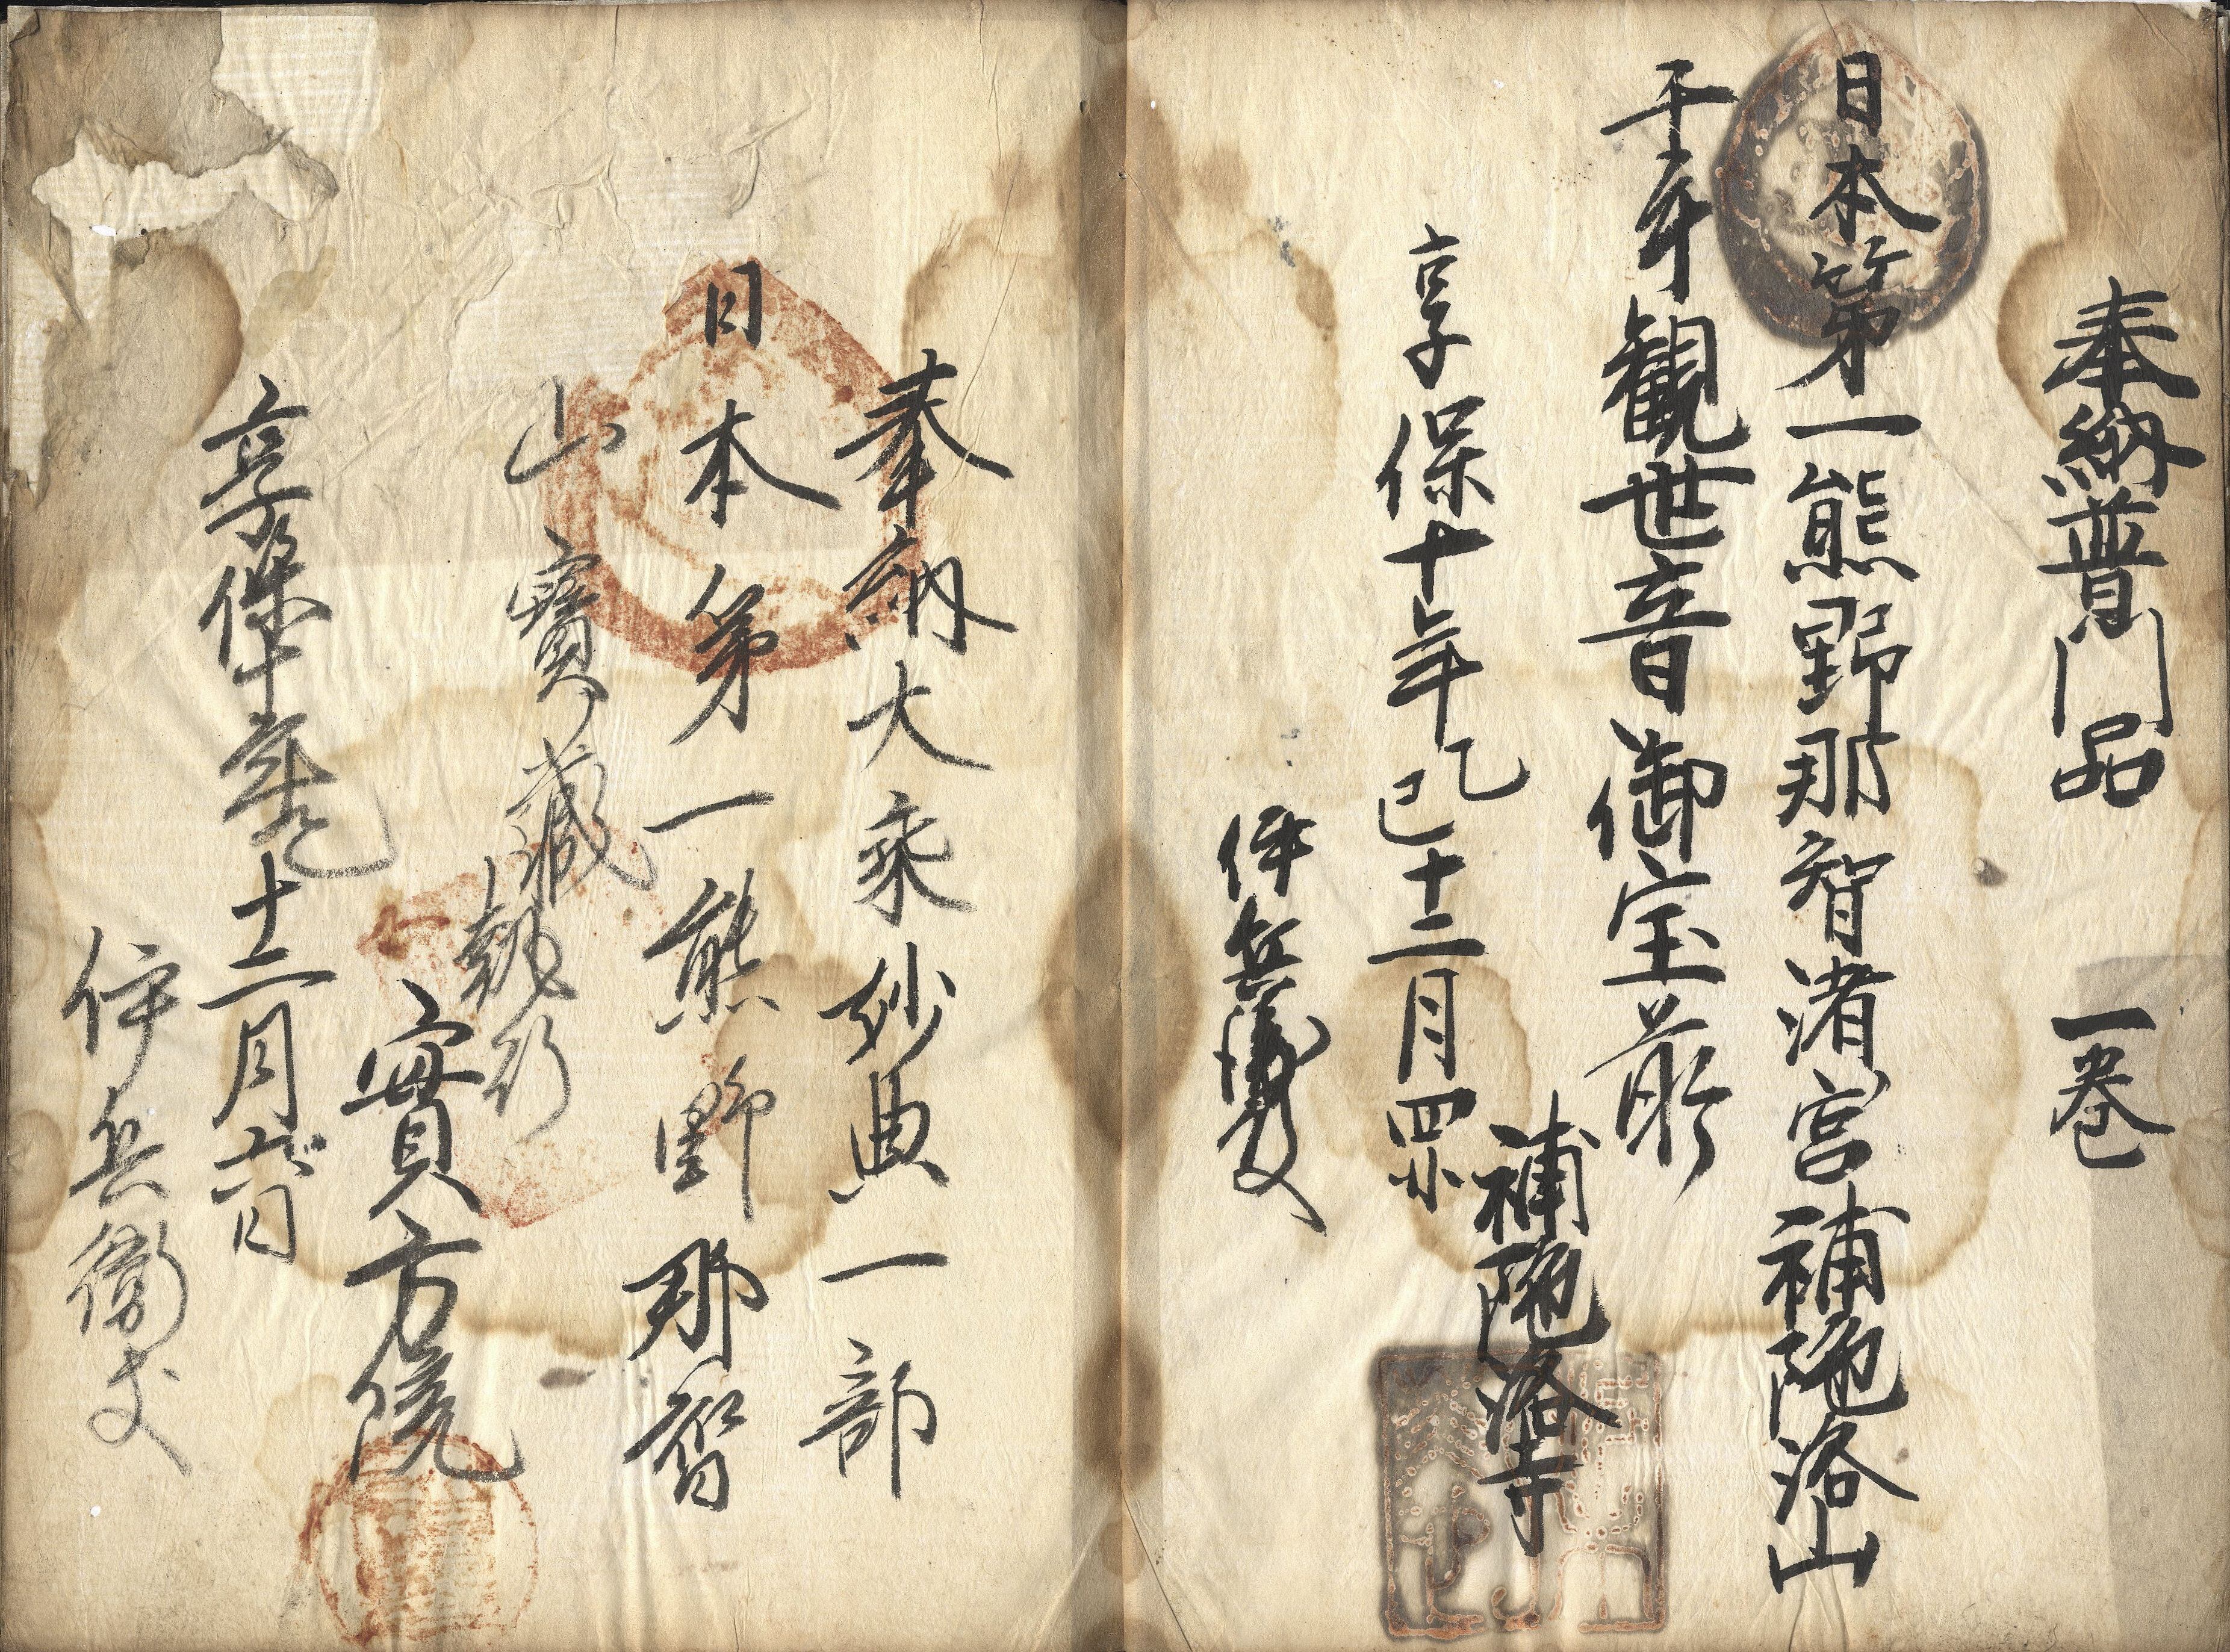 奉納普門品 一巻
日本第一熊野那智渚宮補陁洛山
千手観世音御宝前
補陁洛寺
享保十年乙巳十二月四
伊兵衛殳
奉納大乘妙典一部
日本第一熊野那智
山寳藏執行
實方院
享保十年乙十二月六日
伊兵衛丈